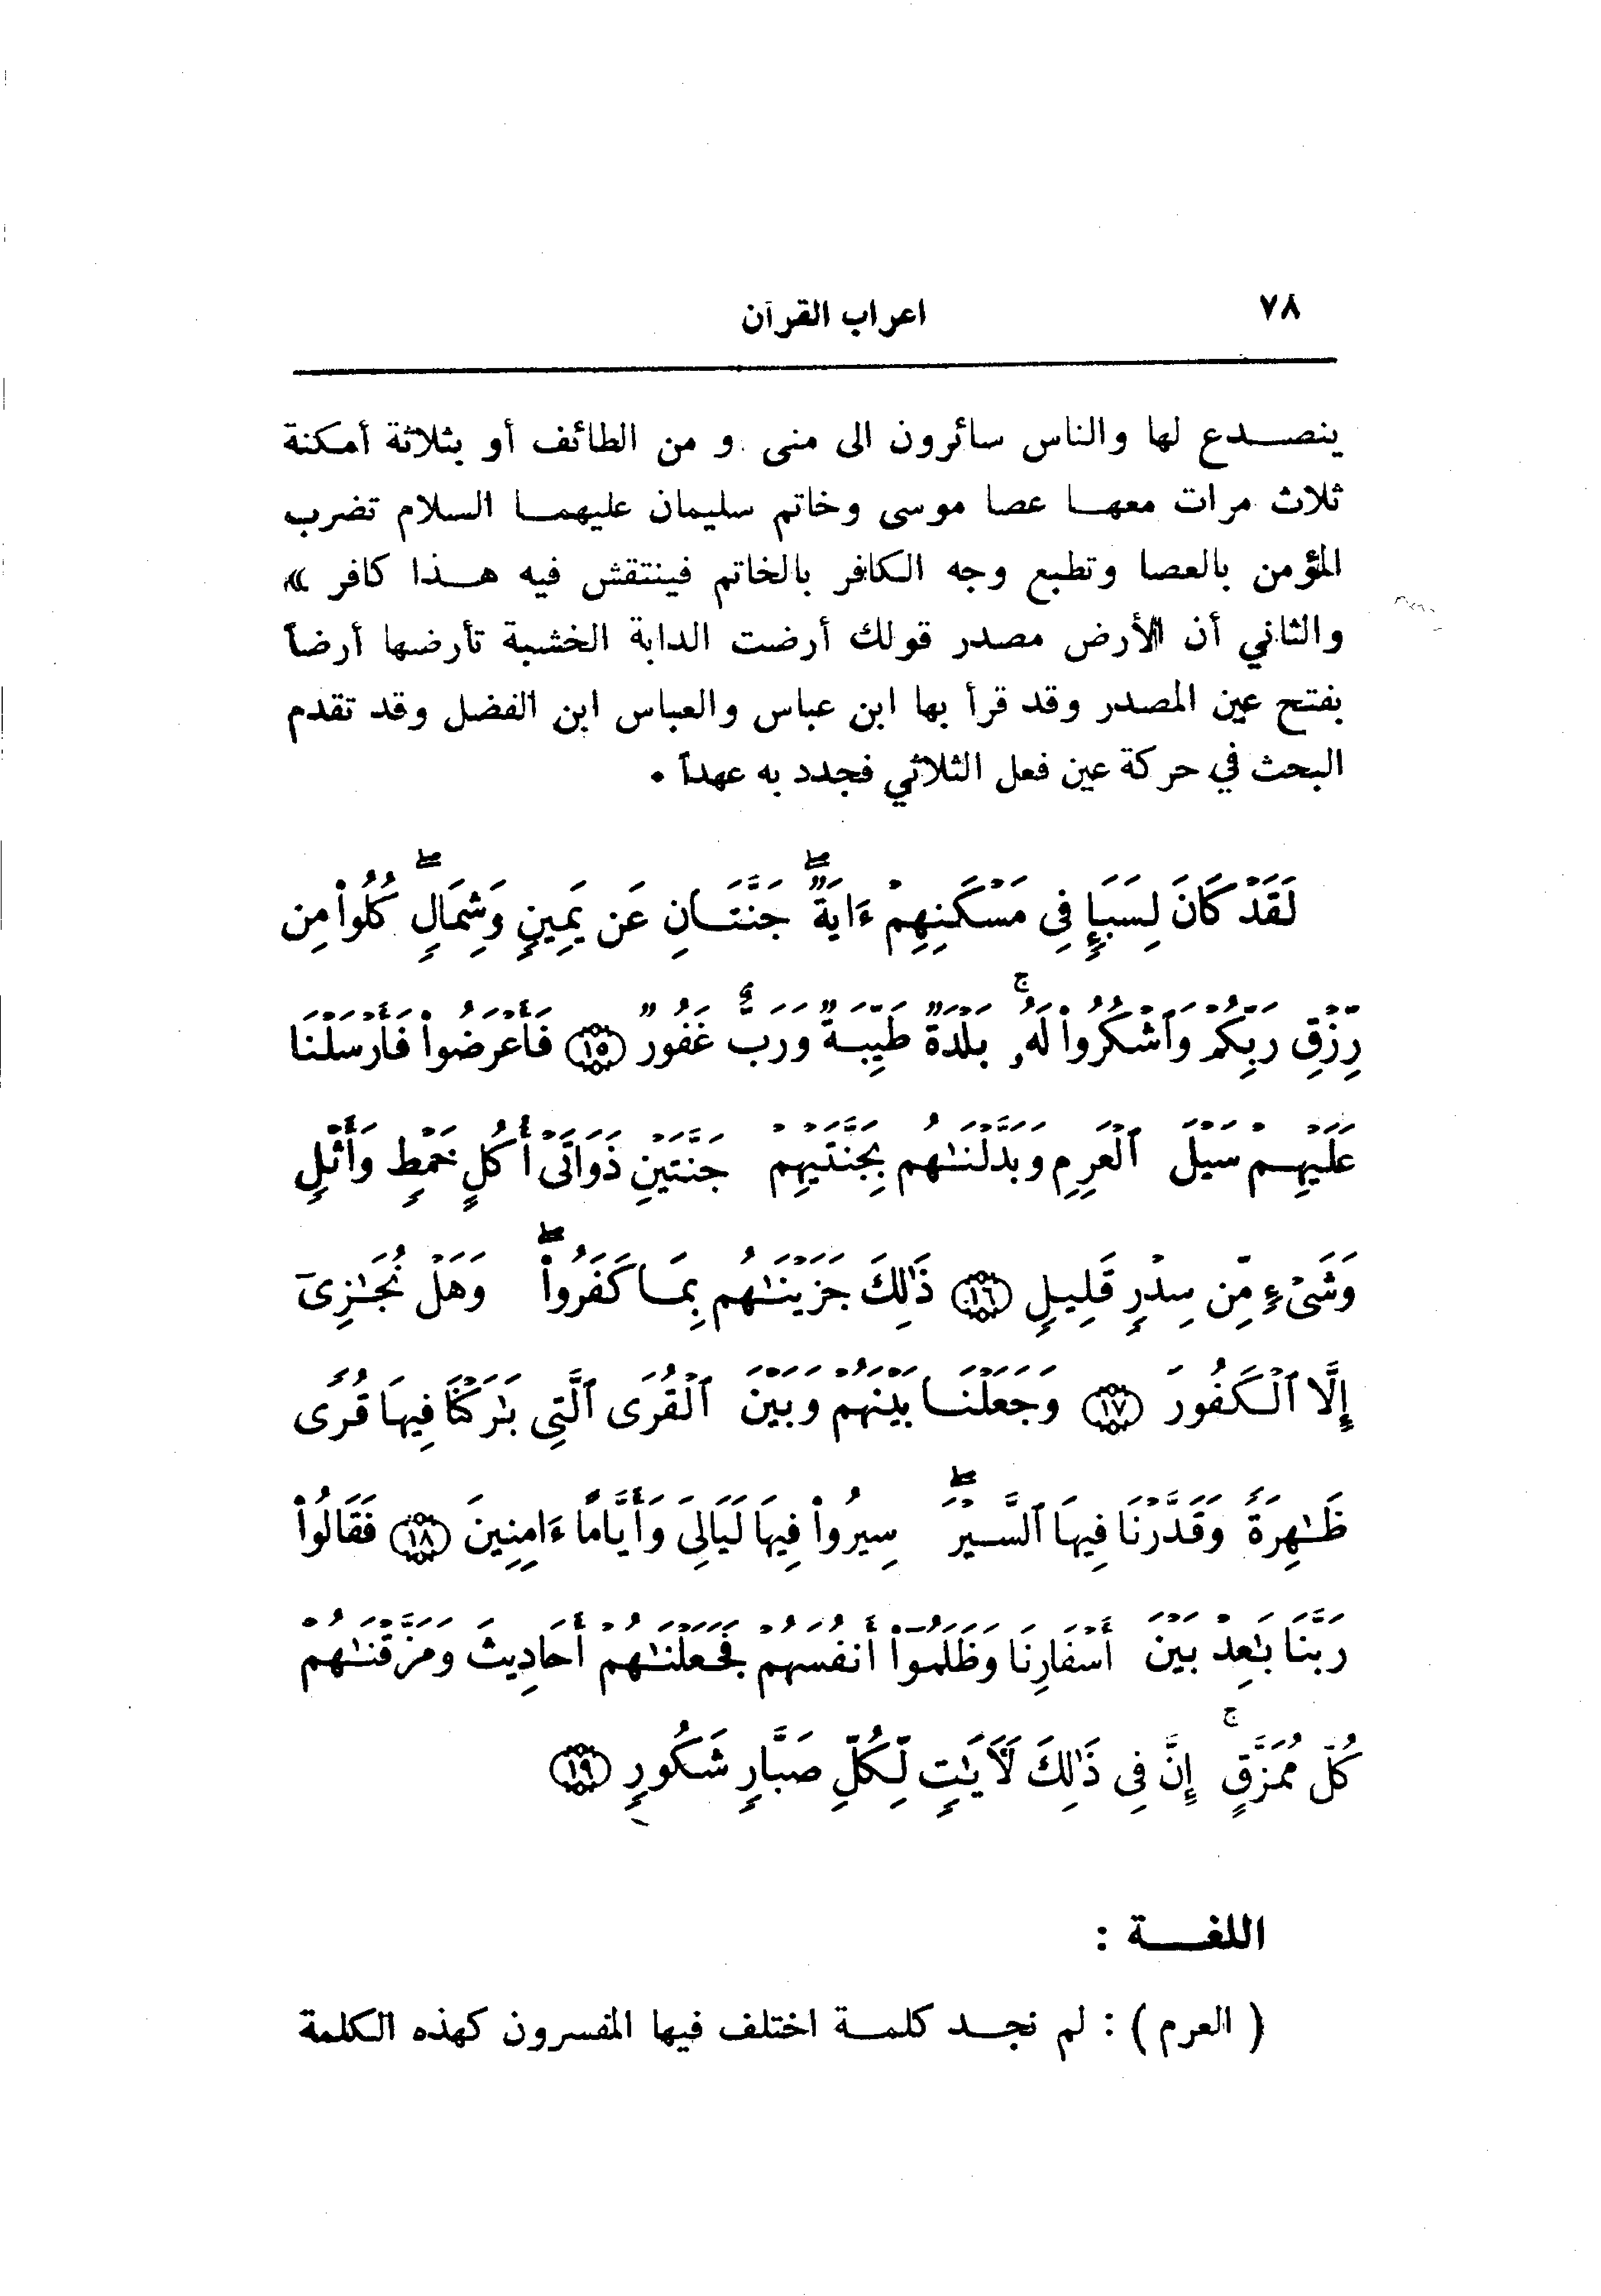 ٧٨
اعراب القرآن
ينصدع لها والناس سائرون الى منى و من الطائف أو بثلاثة أمكنة
ثلاث مرات معها عصا موسى وخاتم سليمان عليهما السلام تضرب
المؤمن بالعصا وتطبع وجه الكافر بالخاتم فينتقش فيه هذا كافر »
والثاني أن الأرض مصدر قولك أرضت الدابة الخشبة تأرضها أرضاً
بفتح عين المصدر وقد قرأ بها ابن عباس والعباس ابن الفضل وقد تقدم
البحث في حركة عين فعل الثلاثي فجدد به عهداً .
لَقَدْ كَانَ لِسَبَإٍ فِى مَسْكَنِهِمْ ءَايَةٌۖ جَنَّتَانِ عَن يَمِينٍ وَشِمَالٍۖ كُلُوا۟ مِن
رِّزْقِ رَبِّكُمْ وَٱشْكُرُوا۟ لَهُۥۚ بَلْدَةٌ طَيِّبَةٌ وَرَبٌّ غَفُورٌ ﴿١٥﴾ فَأَعْرَضُوا۟ فَأَرْسَلْنَا
عَلَيْهِمْ سَيْلَ ٱلْعَرِمِ وَبَدَّلْنَٰهُم بِجَنَّتَيْهِمْ جَنَّتَيْنِ ذَوَاتَىْ أُكُلٍ خَمْطٍ وَأَثْلٍ
وَشَىْءٍ مِّن سِدْرٍ قَلِيلٍ ﴿١٦﴾ ذَٰلِكَ جَزَيْنَٰهُم بِمَا كَفَرُوا۟ۖ وَهَلْ نُجَٰزِىٓ
إِلَّا ٱلْكَفُورَ ﴿١٧﴾ وَجَعَلْنَا بَيْنَهُمْ وَبَيْنَ ٱلْقُرَى ٱلَّتِى بَٰرَكْنَا فِيهَا قُرًى
ظَٰهِرَةً وَقَدَّرْنَا فِيهَا ٱلسَّيْرَۖ سِيرُوا۟ فِيهَا لَيَالِىَ وَأَيَّامًا ءَامِنِينَ ﴿١٨﴾ فَقَالُوا۟
رَبَّنَا بَٰعِدْ بَيْنَ أَسْفَارِنَا وَظَلَمُوٓا۟ أَنفُسَهُمْ فَجَعَلْنَٰهُمْ أَحَادِيثَ وَمَزَّقْنَٰهُمْ
كُلَّ مُمَزَّقٍۚ إِنَّ فِى ذَٰلِكَ لَءَايَٰتٍ لِّكُلِّ صَبَّارٍ شَكُورٍ ﴿١٩﴾
اللغة :
( العرم ) : لم نجد كلمة اختلف فيها المفسرون كهذه الكلمة